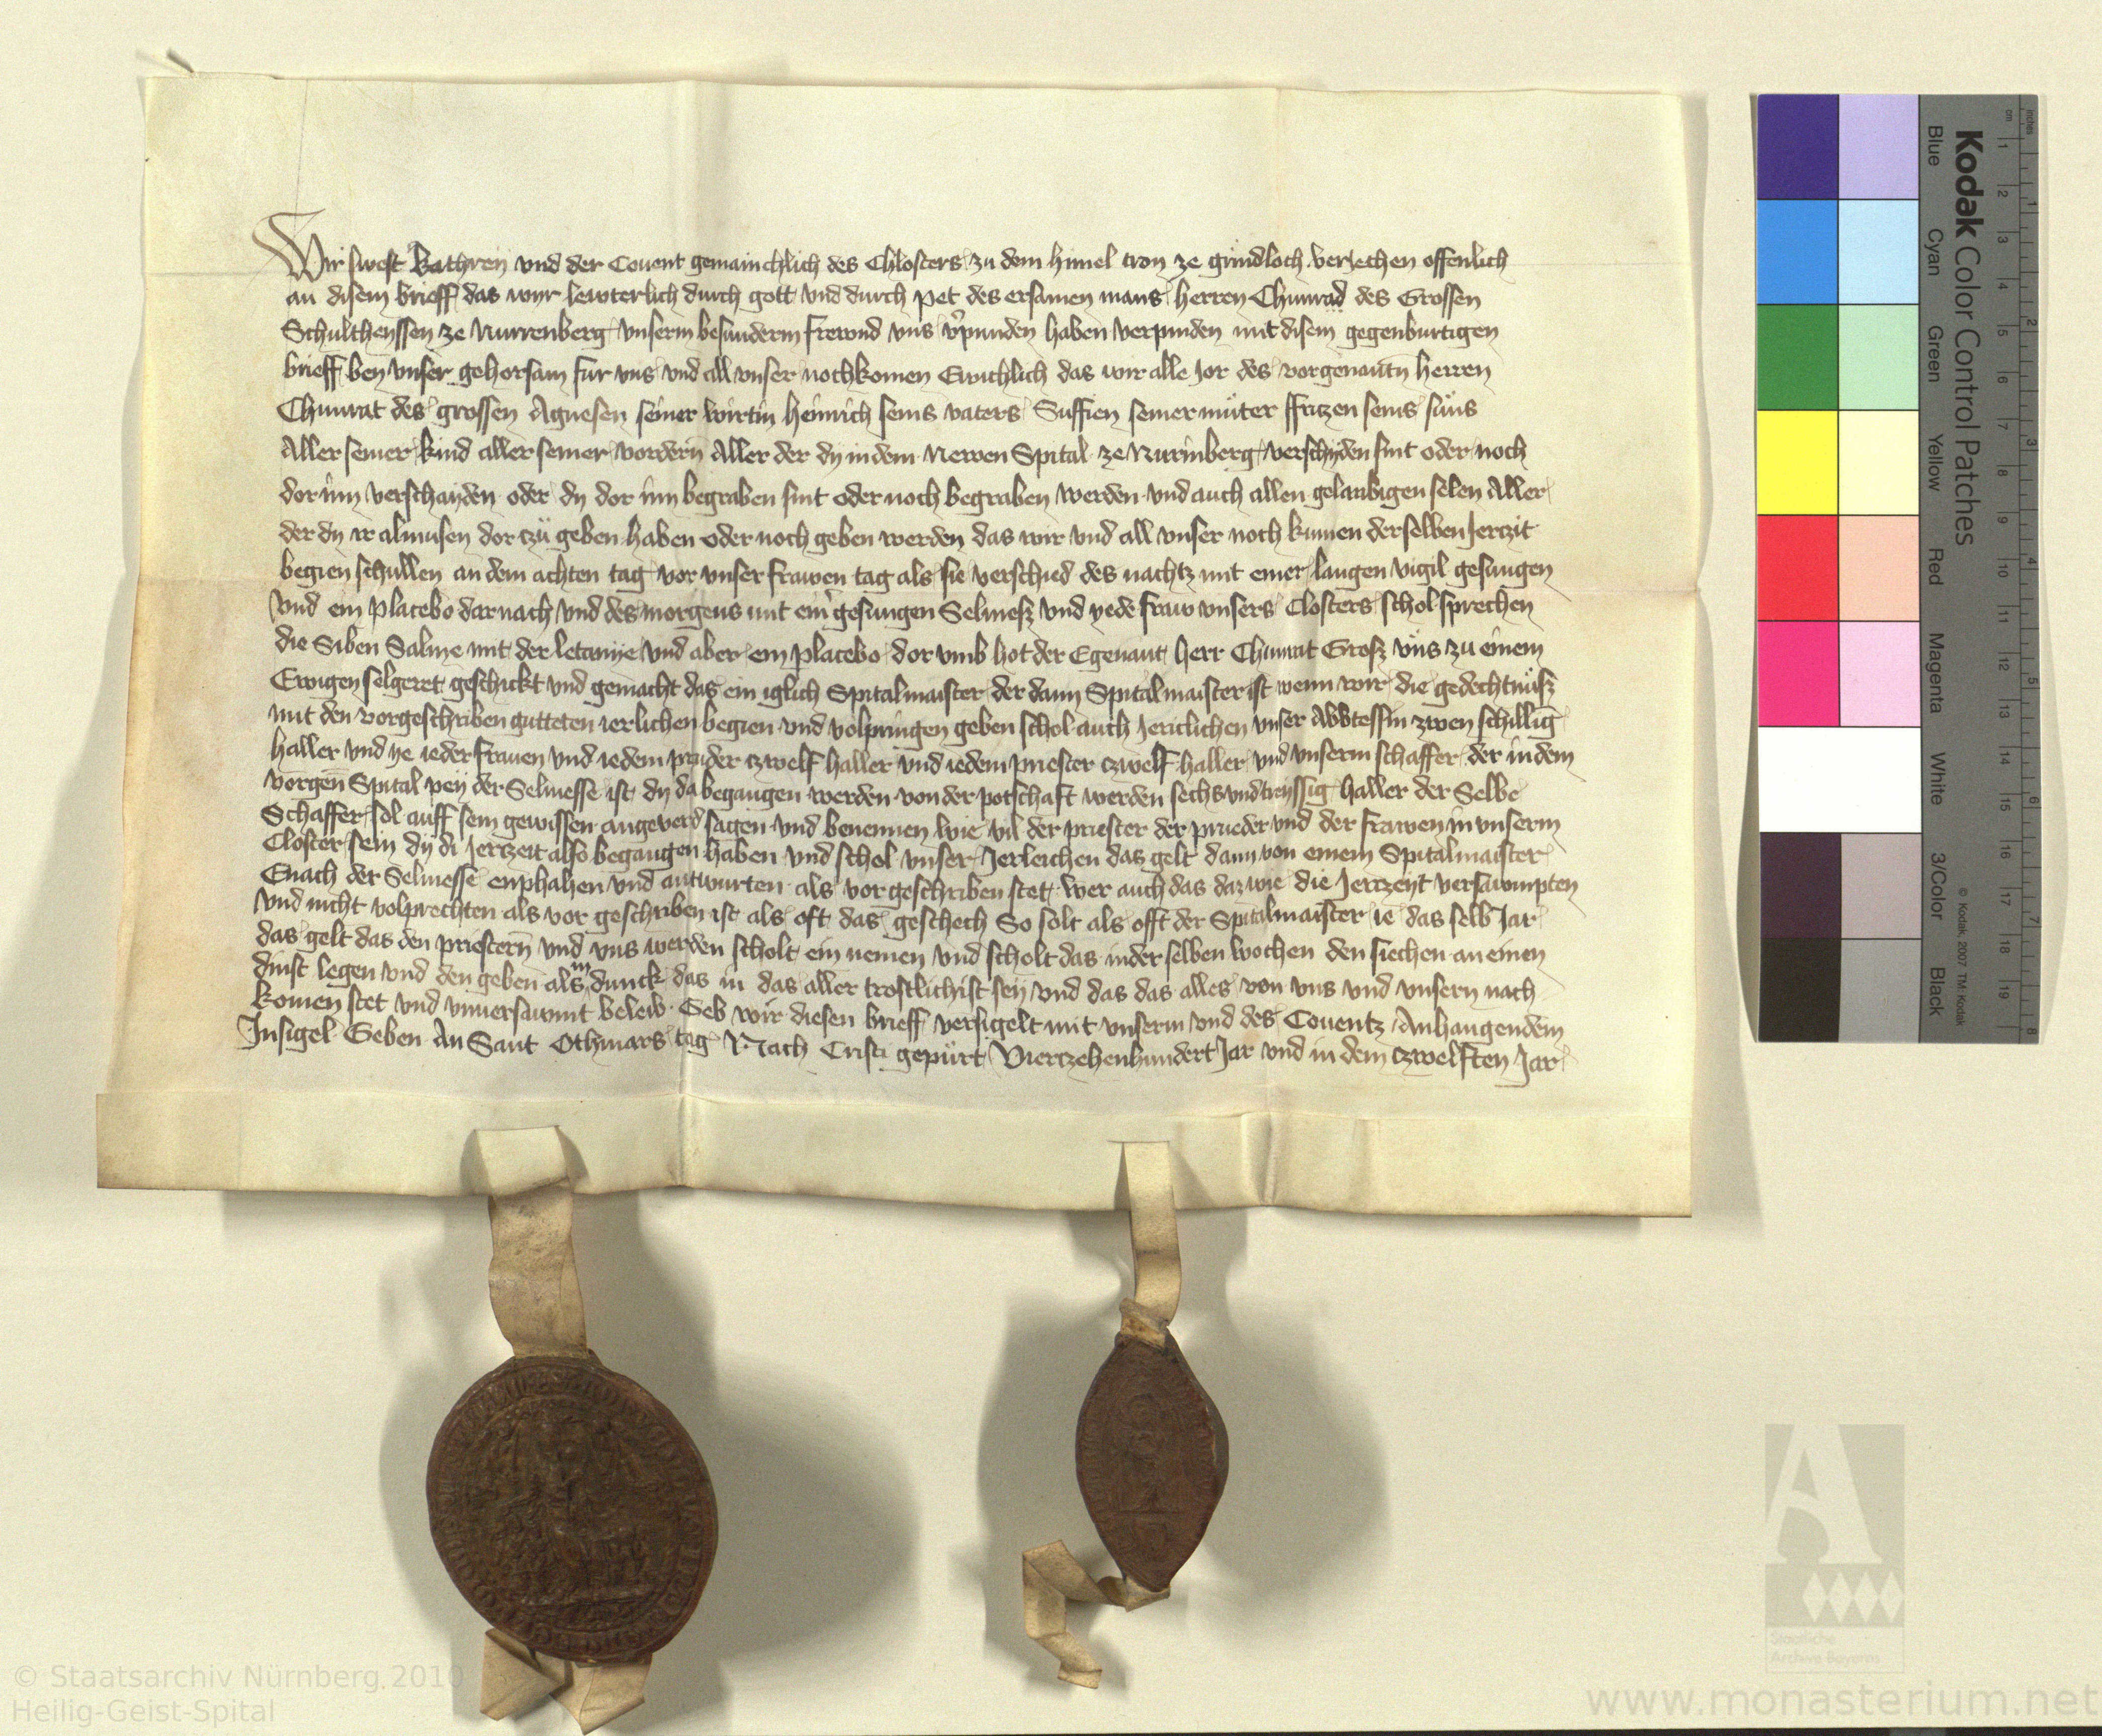 Wir swest Kathrey vnd der Couent gemainchlich des Chlosters zu dem himel tron ze grindloch veriechen offenlich
an disem brieff das wyr lewterlich durch gott vnd durch pet des ersamen mans herren Chunrad des Grossen
Schultheyssen ze Nurrenberg vnserm besunderm frewnd vns v̾punden haben verpinden mit disem gegenburtigen
brieff bey vnser gehorsam fur vns vnd all vnser nochkomen Ewichlich das wir alle Jor des vorgenantn herren
Chunrat des grossen Agnesen seiner wirtin heinrich seins vaters Suffien seiner muͦter ffritzen seins suͦns
Aller seiner kind aller seiner vordern Aller der dy in dem Newen Spital ze Nurinberg verschyden sint oder noch
dor inn verschayden oder dy dor inn begraben sint oder noch begraben werden vnd auch allen gelaubigen selen Aller
der dy ir almusen dor czu geben haben oder noch geben werden das wir vnd all vnser noch kumen derselben Jerczit
begien schullen an dem achten tag vor vnser frawen tag als sie verschied des nachtz mit einer langen vigil gesungen
Vnd ein placebo darnach vnd des morgens mit ein̾ gesungen Selmesz vnd yede fraw vnsers Closters schol sprechen
die Siben Salme mit der letanye vnd aber ein placebo dor vmb hot der Egenant herr Chunrat Grosz vns zu einem
Ewigen selgeret geschickt vnd gemacht das ein iglich Spitalmaister der dann Spitalmaister ist wenn wir die gedechtnusz
mit den vorgeschriben gutteten ierlichen begien vnd volpringen geben schol auch Jericlichen vnser Abbtessin zwen schillig
haller vnd ye ieder frauen vnd iedem pruder czwelf haller vnd iedem priester czwelf haller vnd vnserm schaffer der in dem
vorgen̄ Spital pey der Selmesse ist dy da begangen werden von der potschaft werden sechs vnd dreyssig haller der Selbe
Schaffer sol auff sein gewissen angeverd sagen vnd benennen wie vil der priester der prueder vnd der frawen in vnserm
Closter sein dy di Jerczeit also begangen haben vnd schol vnser Jerleichen das gelt dann von einem Spitalmaister
Enach der Selmesse enphahen vnd antwurten als vor geschriben stet wer auch das daz wir die Jerczeyt versawmpten
vnd nicht volprechten als vor geschriben ist als oft das geschech So solt als offt der Spitalmaister ie das selb Jar
das gelt das den priestern vnd vns werden scholt ein nemen vnd scholt das in der selben wochen den siechen an einen
dinst legen vnd den geben als in dunck das in das aller trostlichist sey vnd das das alles von vns vnd vnsern nach
komen stet vnd vnuersawmt beleib Geb wir diesen brieff versigelt mit vnserm vnd des Couentz Anhangendem
Insigel Geben An Sant Othmars tag Nach Cristi gepurt Vierczehenhundert Jar vnd in dem czwelften Jar
Kodak Color Control Patches
Blue Cyan Green Yellow Red Magenta White 3/Color Black
© Kodak, 2007 TM: Kodak
inches 1 2 3 4 5 6 7 8
cm 1 2 3 4 5 6 7 8 9 10 11 12 13 14 15 16 17 18 19
© Staatsarchiv Nürnberg, 2010
Heilig-Geist-Spital
Staatliche
Archive Bayerns
www.monasterium.net